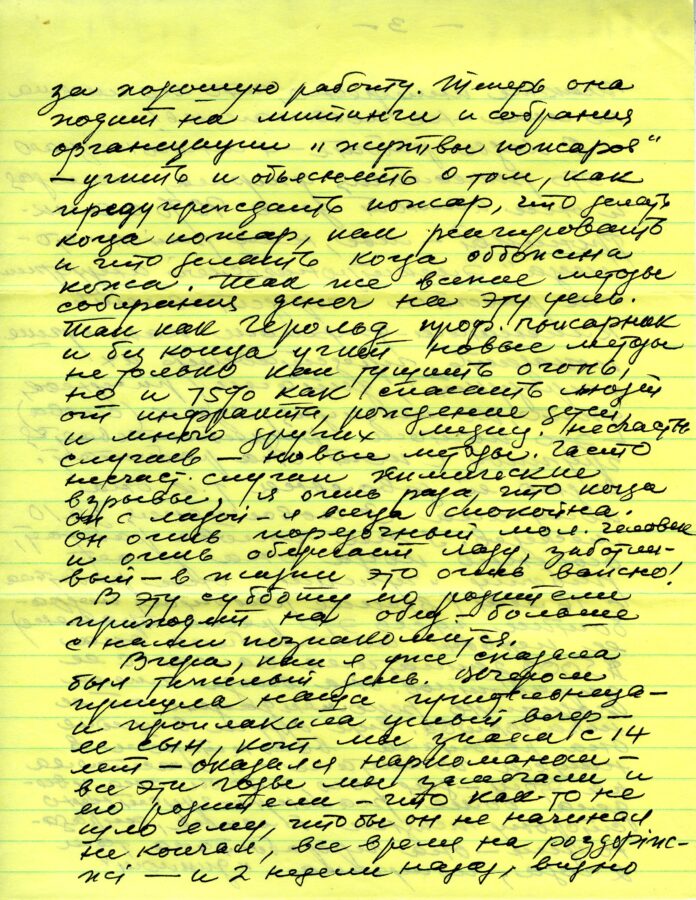 за хорошую работу. Теперь она
ходит на митинги и собрания
организации "жертвы пожаров"
— учить и объяснять о том, как
предупреждать пожар, что делать
когда пожар, как реагировать
и что делать когда обожжена
кожа. Так же всякие методы
собирания денег на эту цель.
Так как Герольд проф. пожарник
и без конца учит новые методы
не только как тушить огонь,
но и 75% как спасать людей
от инфаркта, рождение детей,
и много других медиц. несчастн
случаев — новые методы. Часто
несчаст. случаи химические
взрывы, я очень рада, что когда
он с Ладой — я всегда спокойна.
Он очень порядочный мол. человек
и очень оберегает Ладу, заботли-
вый — в жизни это очень важно!
В эту субботу его родители
приходят на обед — больше
с нами познакомится.
Вчера, как я уже сказала
был тяжелый день. Вечером
пришла наша приятельница —
и проплакала целый вечер —
её сын, кот. мы знаем с 14
лет — оказался наркоманом —
все эти годы мы помогали и
его родители — что как-то не
шло ему, что бы он не начинал
не кончал, все время на роздорiж-
жi — и 2 недели назад, видно